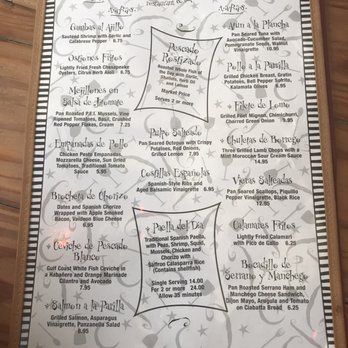 Restaurant &
Tapas
Tapas
Gambas al Ajillo
Sautéed Shrimp with Garlic and
Calabrese Pepper 6.75
Ostiones Fritos
Lightly Fried Fresh Chesapeake
Oysters, Citrus Herb Aioli 6.95
Mejillones en
Salsa de Tomate
Pan Roasted P.E.I. Mussels, Vine
Ripened Tomatoes, Basil, Crushed
Red Pepper Flakes, Cream
7.25
Empanadas de Pollo
Chicken Pesto Empanadas,
Mozzarella Cheese, Sun Dried
Tomatoes, Traditional Tomato
Sauce 5.95
Brocheta de Chorizo
Dates and Spanish Chorizo
Wrapped with Apple Smoked
Bacon, Valdeon Blue Cheese
7.95
Ceviche de Pescado
Blanco
Gulf Coast White Fish Ceviche in
a Habañero and Orange Marinade
Cilantro and Avocado
7.95
Salmon a la Parilla
Grilled Salmon, Asparagus
Vinaigrette, Panzanella Salad
6.95
Pescado
Rostizado
Roasted White Fish of
the Day with Garlic
Shallots, Herb Oil
and Lemon
Market Price
Serves 2 or more
Pulpo Salteado
Pan Seared Octopus with Crispy
Potatoes, Red Onion,
Grilled Lemon 7.95
Costillas Españolas
Spanish-Style Ribs and
Aged Balsamic Vinegrette 6.95
Paella del Dia
Traditional Spanish Paella
with Peas, Shrimp, Squid,
Mussels, Chicken, and
Chorizo with
Saffron Calasparra Rice
(Contains shellfish)
Single Serving 14.00
For 2 or more 24.00
Allow 35 minutes
Atun a la Plancha
Pan Seared Tuna with
Avocado-Cucumber Salad,
Pomegranate Seeds, Walnut
Vinaigrette 10.95
Pollo a la Parilla
Grilled Chicken Breast, Gratin
Potatoes, Bell Pepper Salsa,
Kalamata Olives 6.95
Filete de Lomo
Grilled Filet Mignon, Chimichurri,
Charred Green Onion 9.95
Chuletas de Borrego
Grilled Lamb Chops with a
Mint Moroccan Sour Cream Sauce
14.95
Vieras Salteadas
Pan Seared Scallops, Piquillo
Pepper Vinaigrette, Black Rice
12.95
Calamares Fritos
Lightly Fried Calamari
with Pico de Gallo 6.25
Bocadillo de
Serrano y Manchego
Pan Roasted Serrano Ham and
Manchego Cheese Sandwich,
Dijon Mayo, Arugula and Tomato
on Ciabatta Bread 6.25